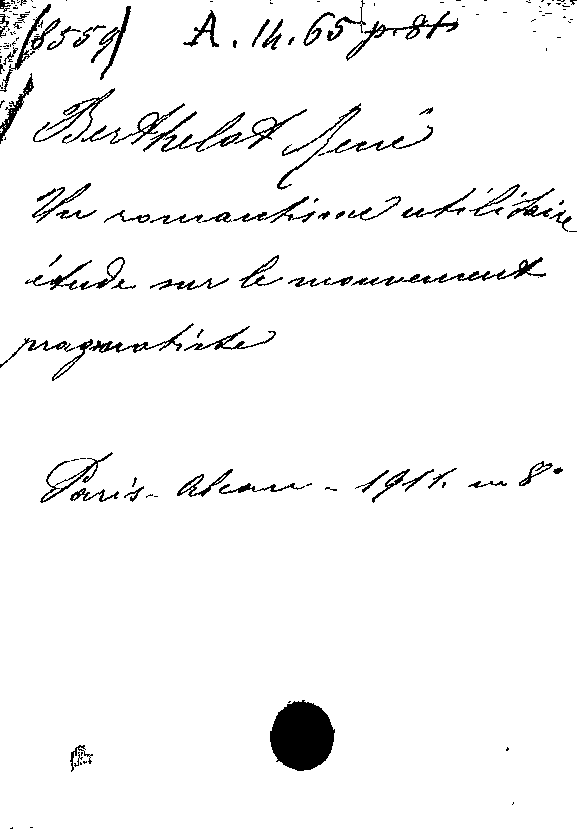 (8559) A. 14. 65
Berthelot René
Un romantisme utilitaire
étude sur le mouvement
pragmatiste
Paris - Alcan - 1911. in 8°